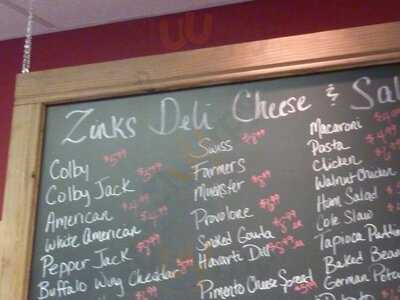 Zinks Deli Cheese & Sal
Colby $5.99
Colby Jack $5.99
American $4.99
White American $4.99
Pepper Jack $5.99
Buffalo Wing Cheddar
Swiss
Farmers
Muenster
Provolone
Smoked Gouda
Havarti Dill
Pimento Cheese Spread
Macaroni
Pasta $4.99
Chicken
Walnut Chicken
Ham Salad
Cole Slaw
Tapioca Pudding
Baked Bean
German Potat